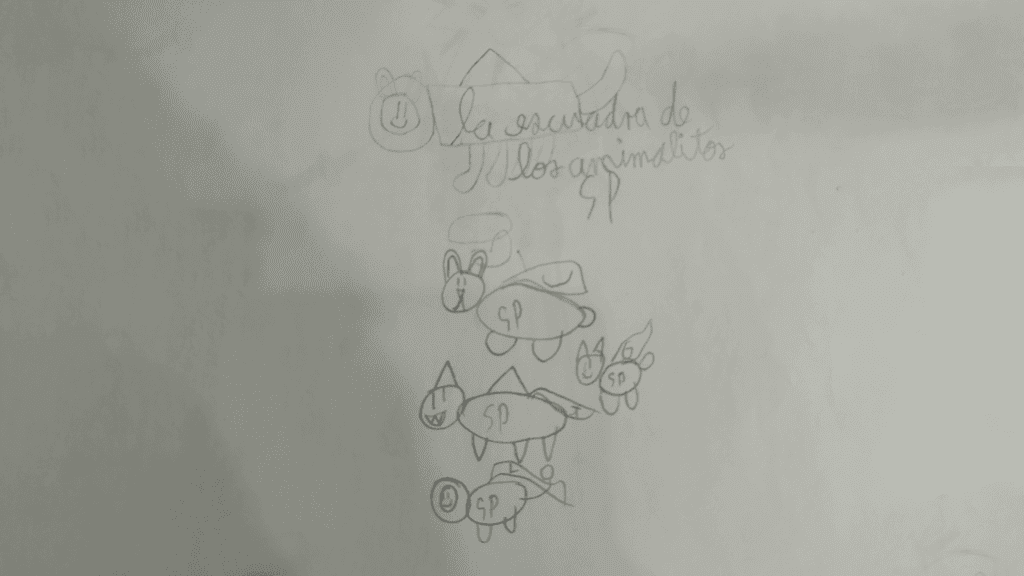 la escuadra de
los animalitos
SP
SP
SP
SP
SP